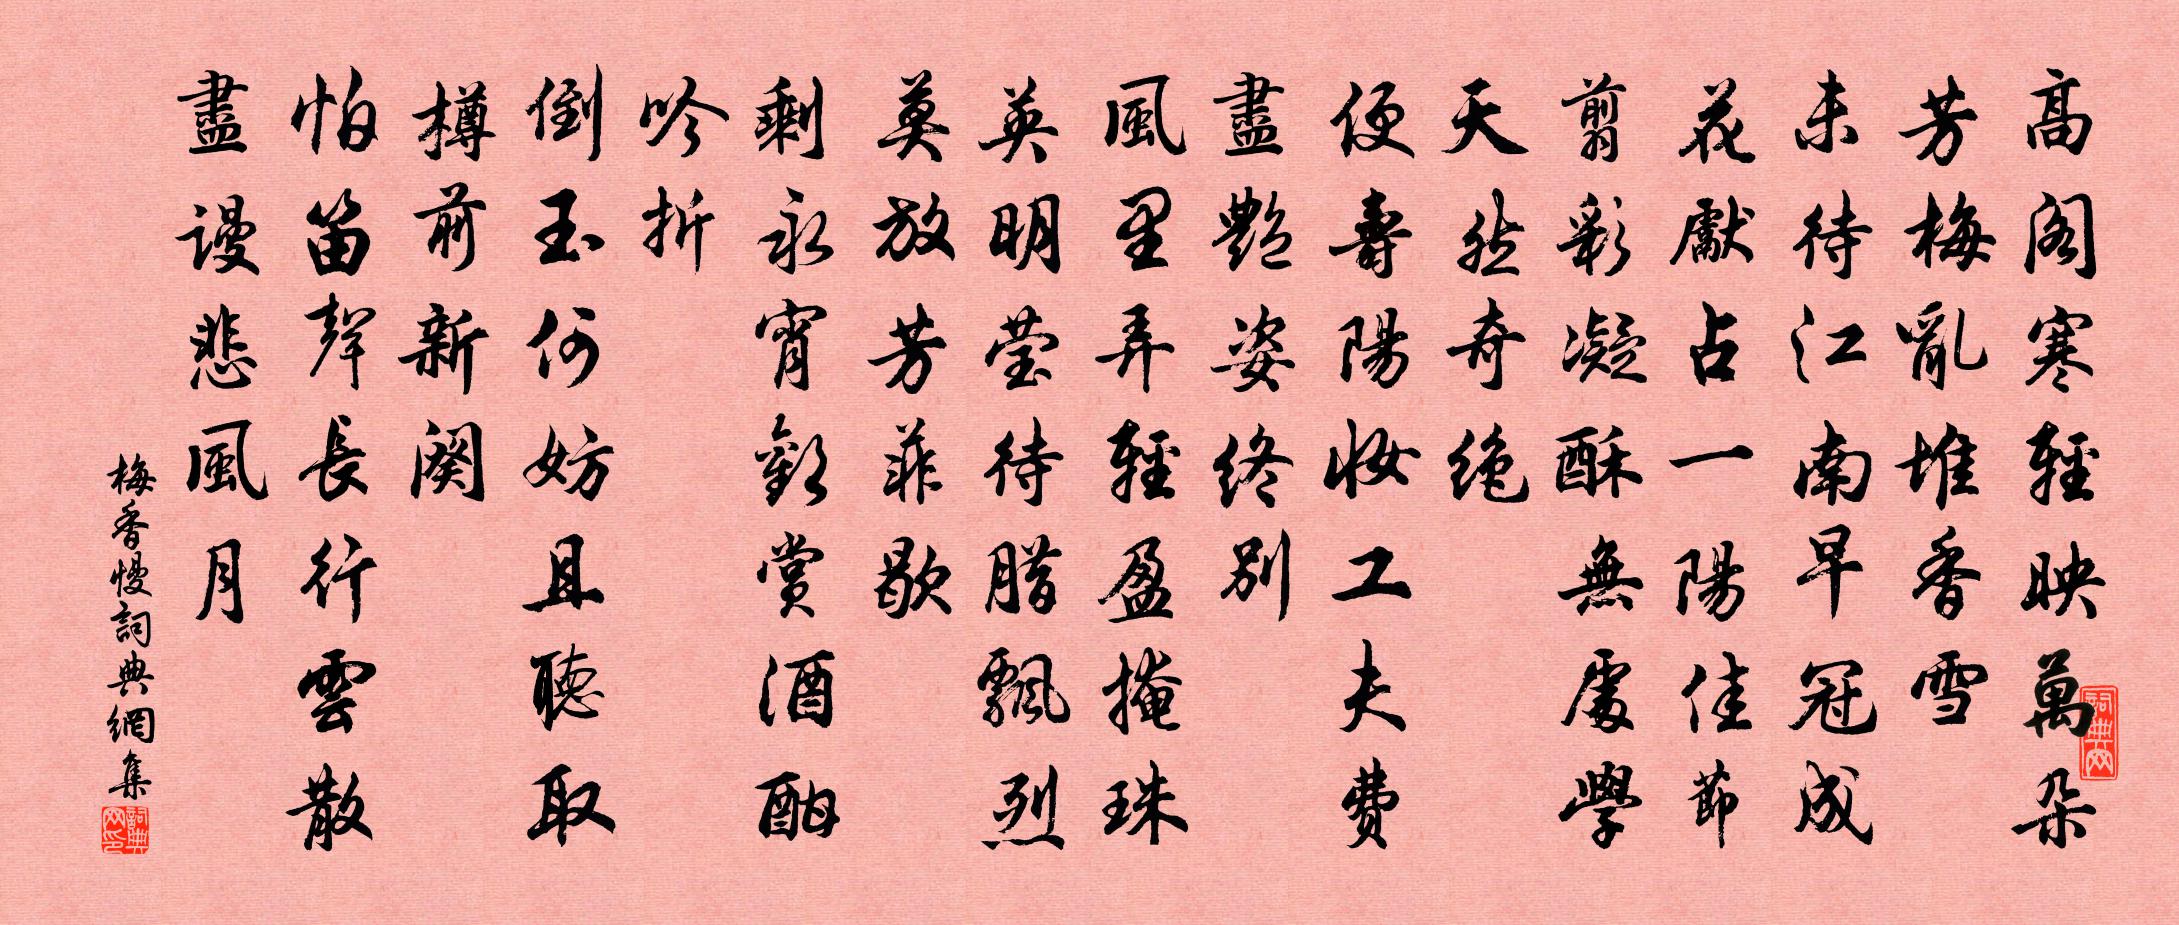 高閣寒輕映萬朵
芳梅亂堆香雪
未待江南早冠成
花獻占一陽佳節
剪彩凝酥無處學
天然奇絶
便壽陽妝工夫費
盡艷姿終別
風里弄輕盈掩珠
英明瑩待腊飄烈
莫放芳菲歇
剩永宵歡賞酒酣
吟折
倒玉何妨且聽取
樽前新闋
怕笛聲長行雲散
盡謾悲風月
梅香慢詞典網集
詞典网
詞典网印